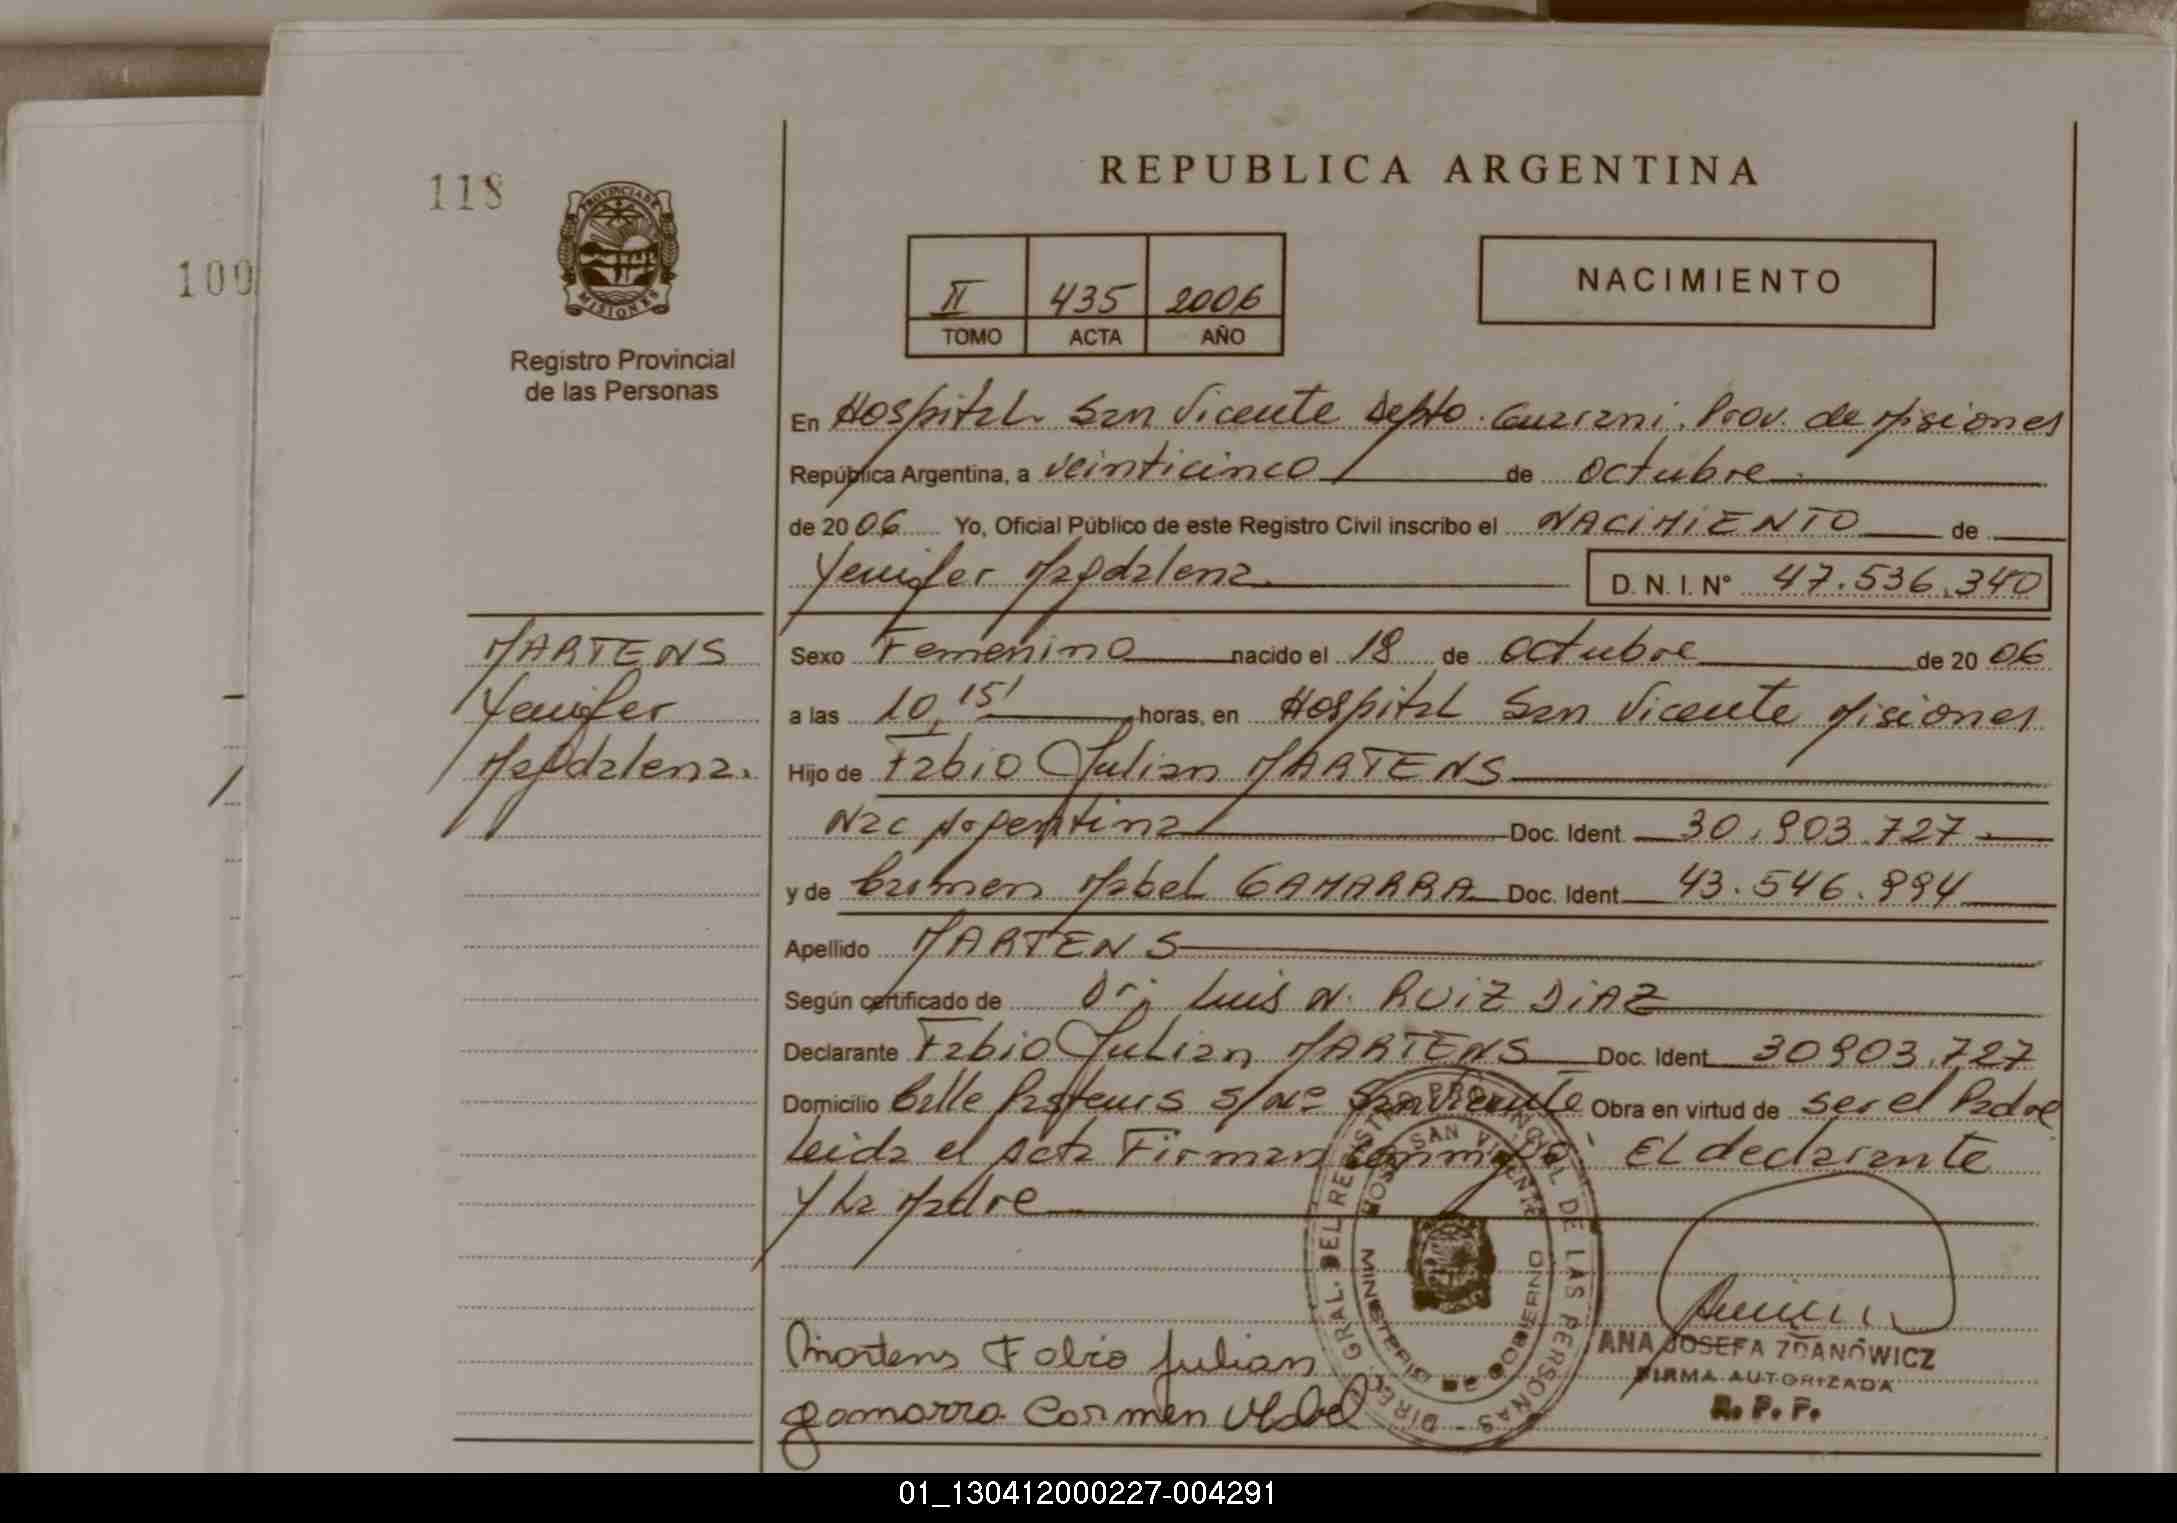 118
100
PROVINCIA DE
MISIONES
Registro Provincial
de las Personas
REPUBLICA ARGENTINA
II 435 2006
TOMO ACTA AÑO
NACIMIENTO
En Hospital San Vicente Depto. Guarani. Prov. de Misiones
República Argentina, a veinticinco de octubre
de 2006 Yo, Oficial Público de este Registro Civil inscribo el NACIMIENTO de
Yenifer Magdalena D. N. I. N° 47.536.340
MARTENS
Yenifer
Magdalena.
Sexo Femenino nacido el 18 de octubre de 2006
a las 10,15' horas, en Hospital San Vicente Misiones
Hijo de Fabio Julian MARTENS
Nac Argentina Doc. Ident. 30.903.727
y de Carmen Mabel GAMARRA Doc. Ident. 43.546.994
Apellido MARTENS
Según certificado de Dr; Luis N. RUIZ DIAZ
Declarante Fabio Julian MARTENS Doc. Ident. 30903.727
Domicilio Calle Pasteurs s/Nº San Vicente Obra en virtud de ser el Padre
Leida el acta Firman conmigo El declarante
y La Madre
DIREC. GRAL. DEL REGISTRO PROVINCIAL DE LAS PERSONAS
HOSP. SAN VICENTE
MINISTERIO DE GOBIERNO
Martens Fabio Julian
gamarra Carmen Mabel
ANA JOSEFA ZDANOWICZ
FIRMA AUTORIZADA
R. P. P.
01_130412000227-004291